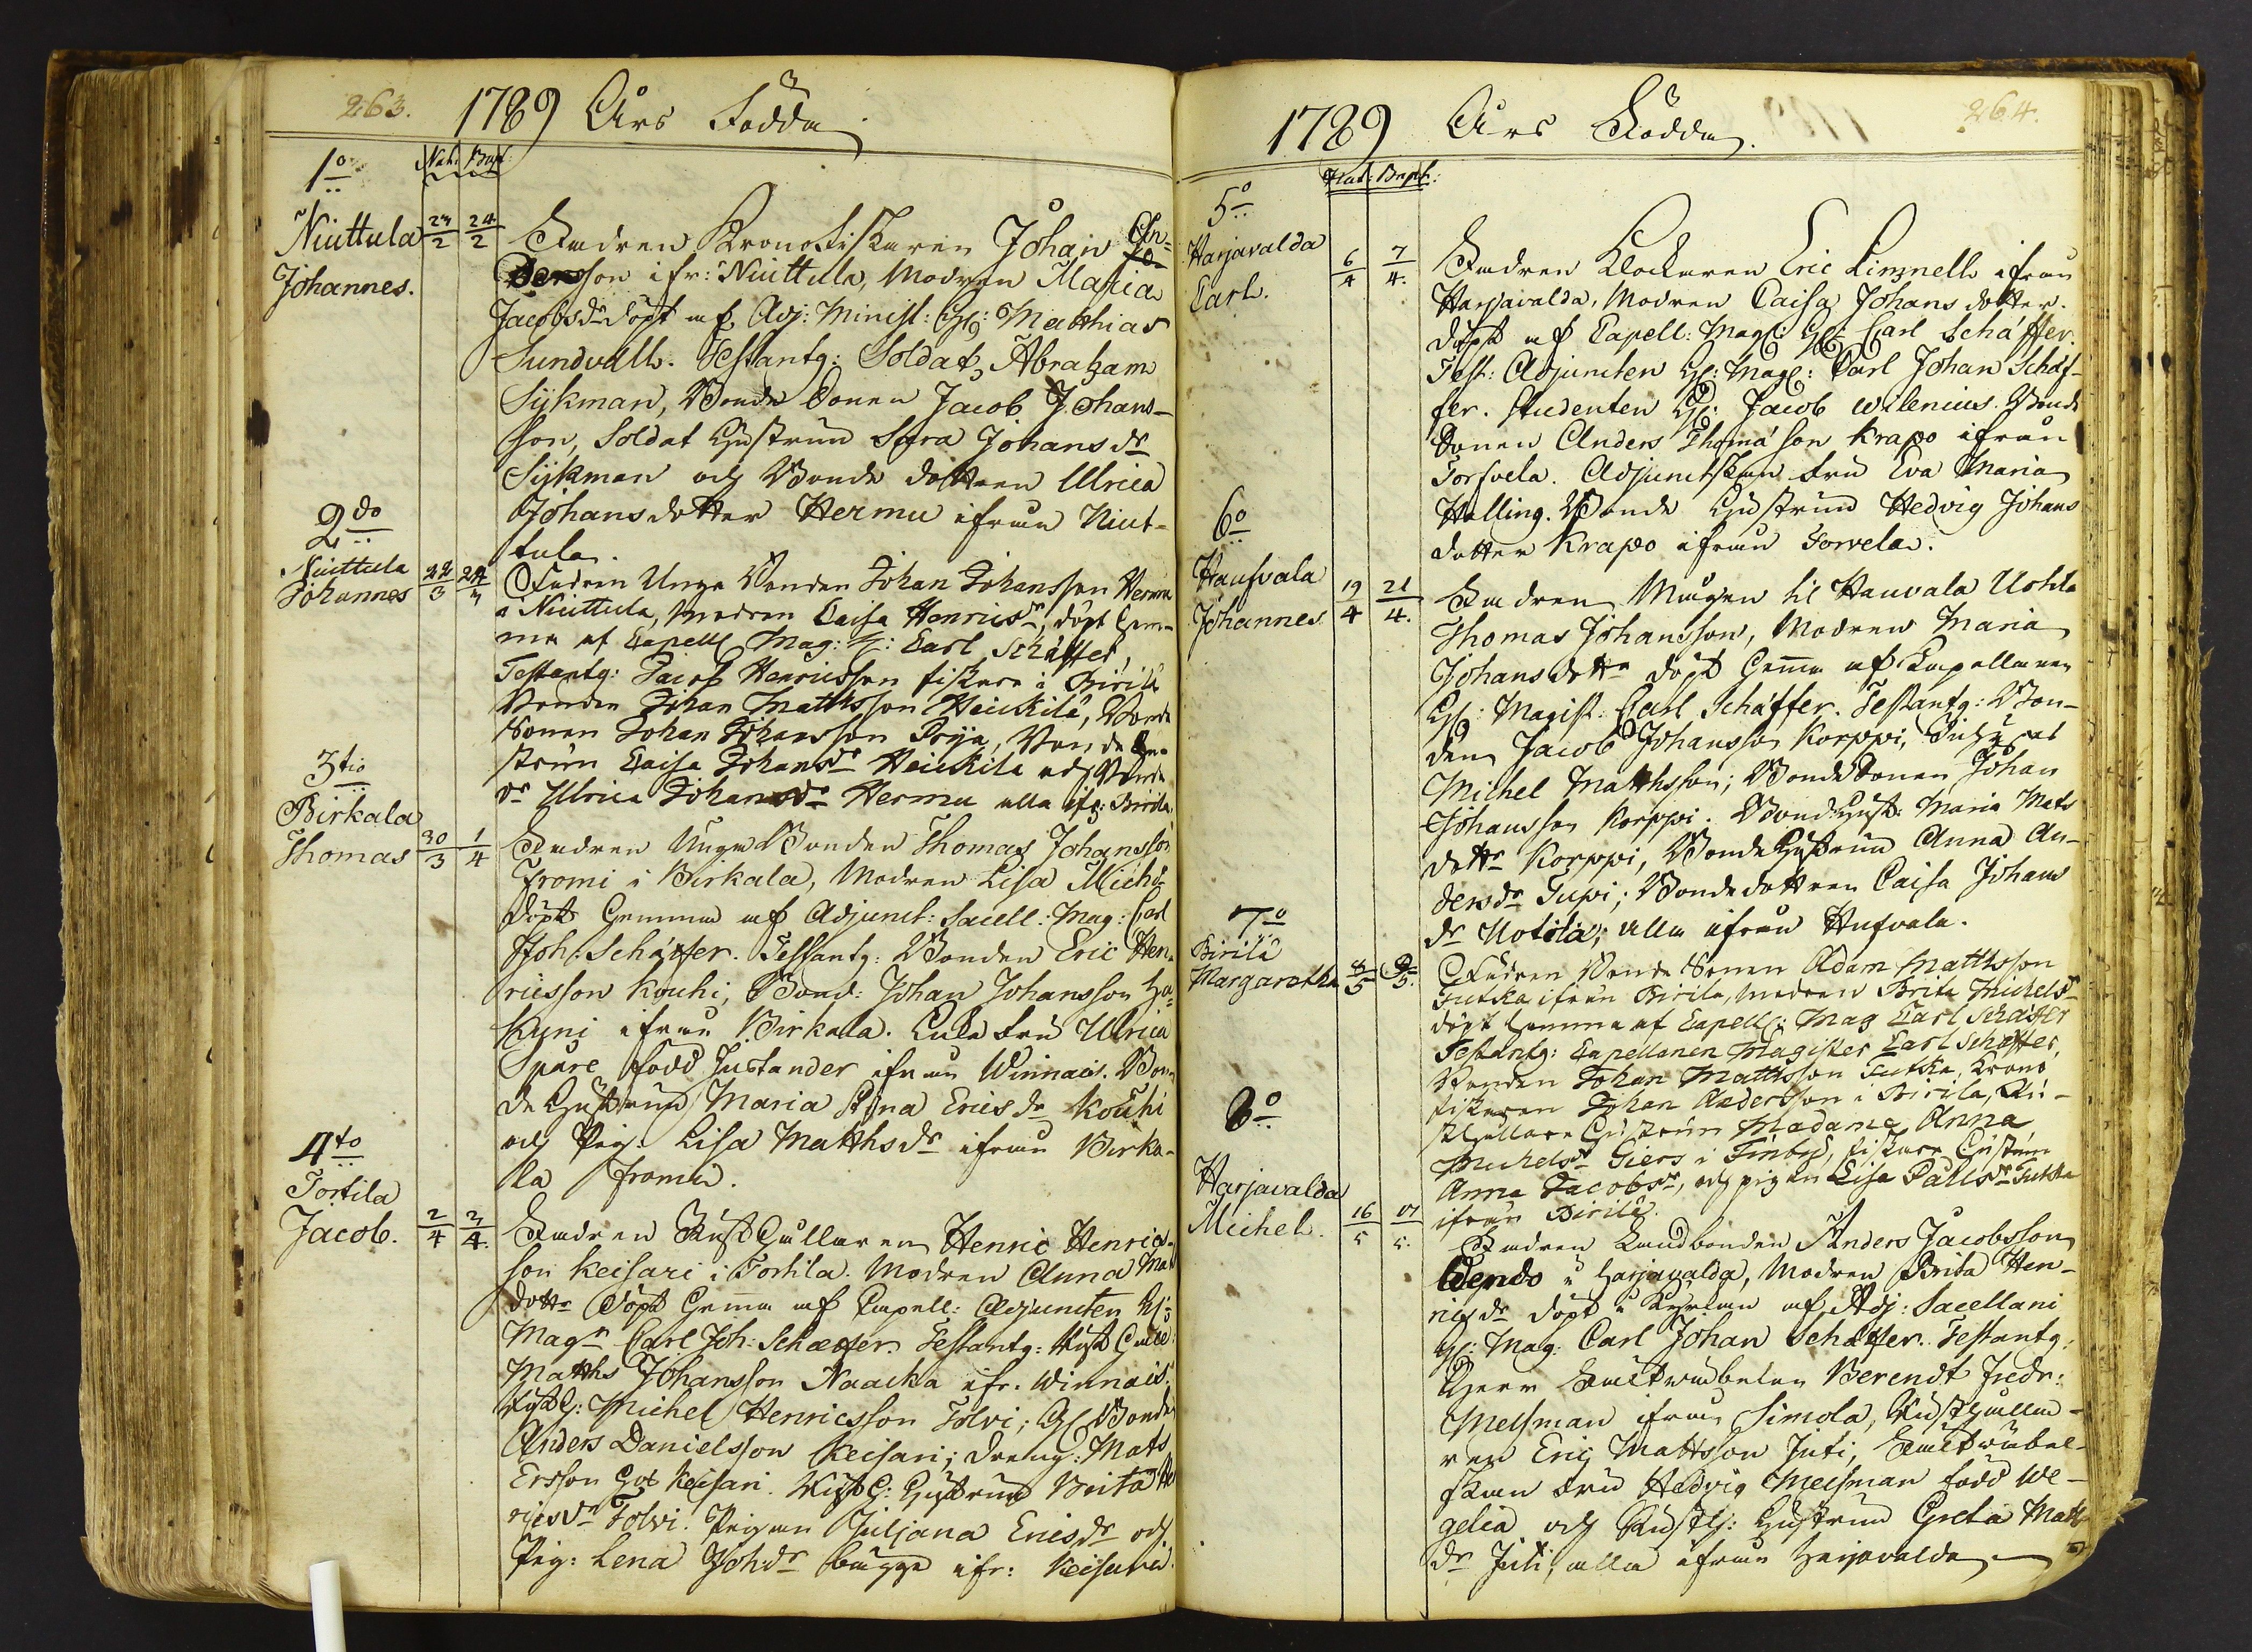 263. 1789 Års Födda
Nat: Bapt:
1o
Niuttula
Johannes.
23/2 24/2
Fadren Kronofiskaren Johan An-
dersson ifr: Niuttula, Modren Maria
Jacobsdr döpt af Adj: Minist: Hr: Matthias
Sundvall. Testantg: Soldat Abraham
Sykman, Bonde Sonen Jacob Johans-
son, Soldat Hustrun Sara Johansdr
Sykman och Bonde dottren Ulrica
Johansdotter Hermu ifrån Niut-
tula.
2do
Niuttula
Johannes
22/3 24/3
Fadren Unga Bonden Johan Johansson Hermu
i Niuttula, modren Caisa Henricsdr, döpt hem-
ma af Capell Mag: Hr: Carl Schäffer,
Testantg: Jacob Henricsson fiskare i Birilä
Bonden Johan Matthsson Heickilä, Bonde
Sonen Johan Johansson Pryja, Bonde Hu-
strun Caisa Johansdr Heickilä och Bonde
dr Ulrica Johansdr Hermu alla ifr: Birila.
3tio
Birkala
Thomas
30/3 1/4
Fadren Unga Bonden Thomas Johansson
Fromi i Birkala, Modren Lisa Michdr
döpt hemma af Adjunct: Sacell: Mag: Carl
Joh: Schäffer. Testantg: Bonden Eric Hen-
ricsson Kouhi, Bond: Johan Johansson Ha-
kyni ifrån Birkala. Enke Fru Ulrica
Spåre född Justander ifrån Winnais. Bon-
de Hustrun Maria Stina Ericsdr Kouhi
och Pig: Lisa Matthsdr ifrån Birka-
la Fromi.
4to
Tortila
Jacob.
2/4 3/4.
Fadren Rusthållaren Henric Henrics-
son Keisari i Tortila. Modren Anna Mats
dottr döpt hemma af Capell: Adjuncten Hr:
Magr Carl Joh: Schæffer. Testantg: Rust håll:
Matths Johansson Naacka ifr. Winnais.
Rusth: Michel Henricsson Tolvi; Bonden
Anders Danielsson Keisari; Dreng: Mats
Ersson Keisari. Rusth: Hustrun Brita Hen
ricsdr Tolvi. Pigan Juljana Ericsdr och
Pig: Lena Johdr bugge ifr: Keisari.
1789 Års Födda. 264.
Nat: Bapt:
5o
Harjavalda
Carl.
6/4 7/4.
Fadren Klockaren Eric Limnell ifrån
Harjavalda, Modren Caisa Johans dotter.
döpt af Capell: Mag: Hr: Carl Schäffer.
Test: Adjuncten Hr: Mag: Carl Johan Schäf-
fer. Studenten Hr: Jacob Wilenius. Bonde
Sonen Anders Thomä son Krapo ifrån
Torfvela. Adjunctskan Fru Eva Maria
Helling. Bonde Hustrun Hedvig Johans
dotter Krapo ifrån Torvela.
6o
Haufvala
Johannes
19/4 21/4.
Fadren Mågen til Hauvala Uotila
Thomas Johansson, Modren Maria
Johansdottr döpt hemma af Capellanen
Hr: Magist: Carl Schäffer. Testantg: Bon-
den Jacob Johansson Korppi,
Michel Matthsson; Bonde Sonen Johan
Johansson Korppi. Bond: Hust: Maria Mats
dottr Korppi, Bonde Hustrun Anna An-
dersdr Supi; Bonde dottren Caisa Johans
dr Uotila; alla ifrån Hufvala.
7o
Birilä
Margaretha
8/5 9/5.
Fadren Bonde Sonen Adam Matthsson
Tutka ifrån Birila, modren Brita Michelsdr
döpt hemma af Capell: Mag Carl Schäffer
Testantg: Capellanen Magister Carl Schæffer,
Bonden Johan Matthsson Tutka, Krono
fiskaren Johan Andersson i Birila, Ru-
sthållare Hustrun Madame Anna
Michelsdr Giers i Finby, fiskare Hustrun
Anna Jacobsdr, och pigan Lisa Pålsdr Tutka
ifrån Birilä.
8o
Harjavalda
Michel.
16/5 17/5.
Fadren Landbonden Anders Jacobsson
i Harjavalda, Modren Brita Hen-
ricsdr döpt i Kyrkan af Adj: Sacellani
Hr: Mag: Carl Johan Schæffer. Testantg:
Herr Berendt Fredr:
Melsman ifrån Simola, Rusthålla-
ren Eric Mattsson Juti,
skan Fru Hedvig Meisman född We-
gelia och Rusth: Hustrun Greta Matts
dr Juti, alla ifrån Harjavalda